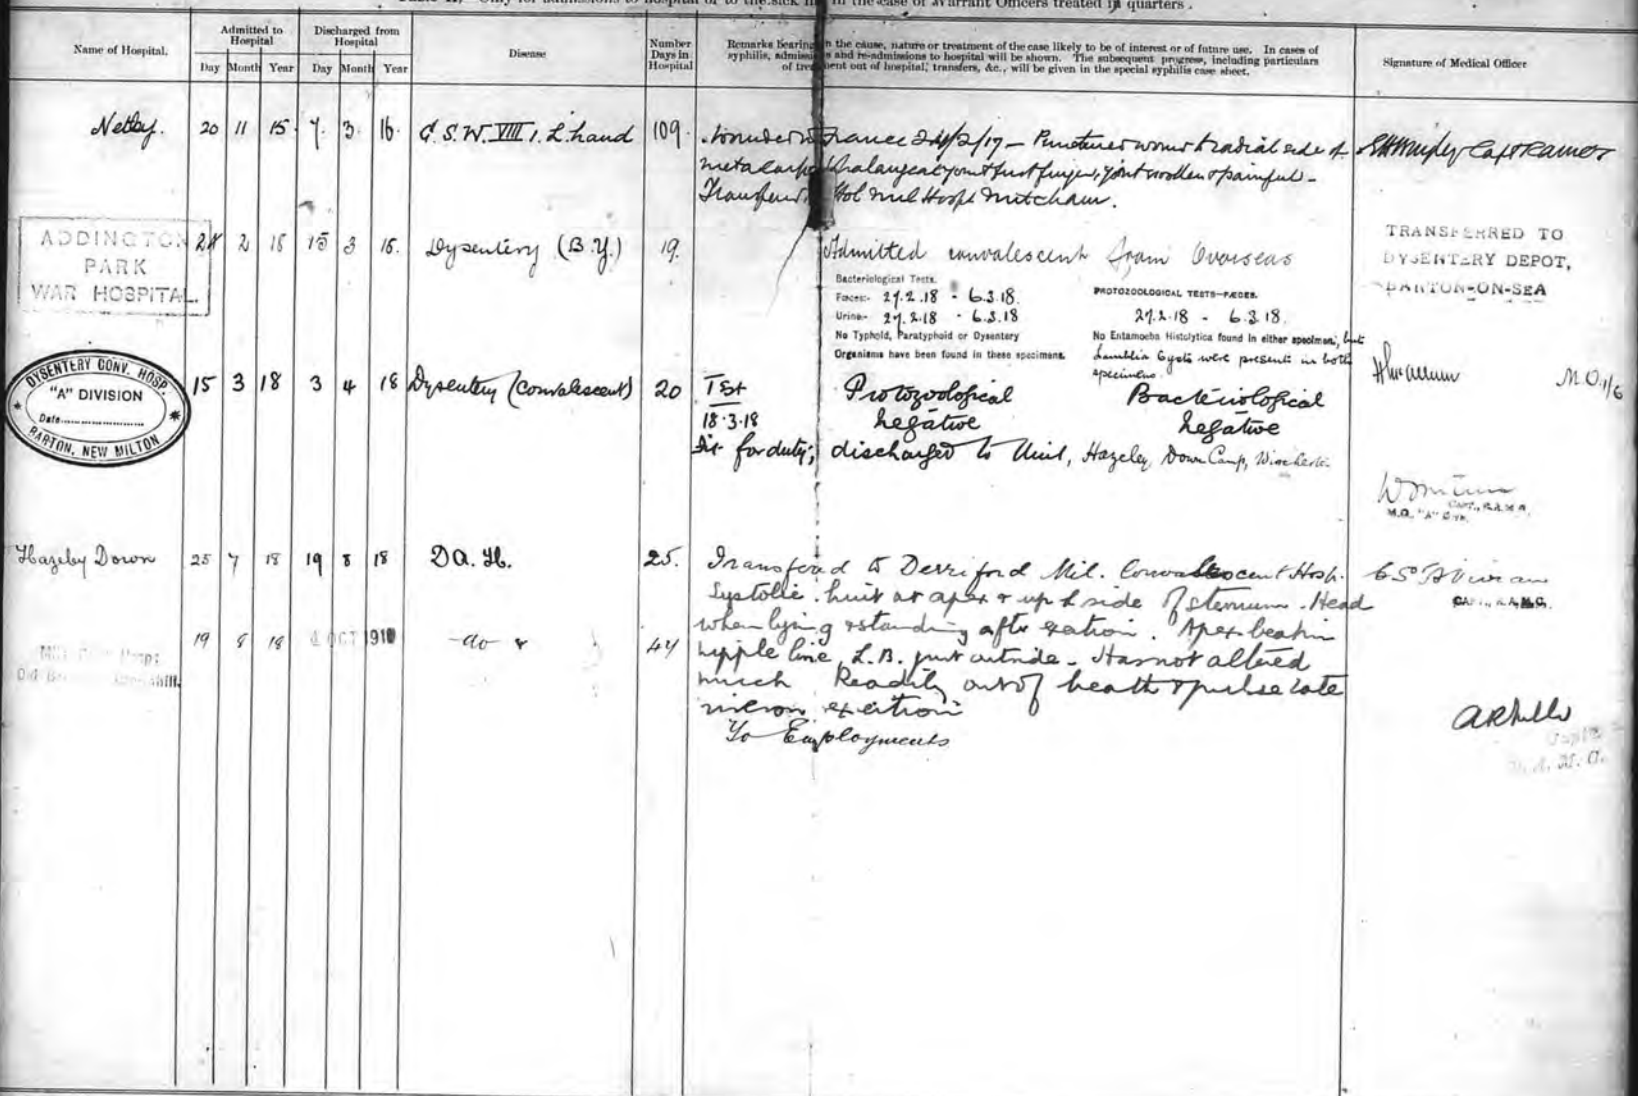 Only for admissions to hospital or to the sick in the case of Warrant Officers treated in quarters.
Name of Hospital.
Admitted to Hospital
Day Month Year
Discharged from Hospital
Day Month Year
Disease
Number Days in Hospital
Remarks bearing on the cause, nature or treatment of the case likely to be of interest or of future use. In cases of
syphilis, admissions and re-admissions to hospital will be shown. The subsequent progress, including particulars
of treatment out of hospital, transfers, &c., will be given in the special syphilis case sheet.
Signature of Medical Officer
Netley. 20 11 15. 7. 3. 16. G.S.W. VIII 1. L. hand 109. France 24/2/17 — Punctured wound radial side of
phalangeal joint first finger, joint swollen & painful -
Mil Hosp Mitcham.
ADDINGTON
PARK
WAR HOSPITAL.
2 18 15 3 18. Dysentery (B.Y.) 19. Admitted convalescent from Overseas
TRANSFERRED TO
DYSENTERY DEPOT,
BARTON-ON-SEA
Bacteriological Tests.
Faeces:- 27.2.18 - 6.3.18.
Urine- 27.2.18 - 6.3.18
No Typhoid, Paratyphoid or Dysentery
Organisms have been found in these specimens.
PROTOZOOLOGICAL TESTS—FÆCES.
27.2.18 - 6.3.18.
No Entamoeba Histolytica found in either specimen, but
Lamblia Cysts were present in both
specimens.
DYSENTERY CONV. HOSP.
"A" DIVISION
Date
BARTON, NEW MILTON
15 3 18 3 4 18 Dysentery (Convalescent) 20 Test Protozoological Bacteriological
M.O. 1/6
18.3.18 negative negative
Fit for duty; discharged to Unit, Hazeley Down Camp, Winchester.
CAPT., R.A.M.C.
M.O. "A" Divn.
Hazeley Down 25 7 18 19 8 18 D.A.H. 25. Transferred to Derriford Mil. Convalescent Hosp.
CAPT., R.A.M.C.
Systolic bruit at apex & up L side of sternum. Head
when lying & standing after exertion. Apex beat in
19 8 18 4 OCT 1918 -do- 47
nipple line, L.B. just outside. Has not altered
much. Readily out of breath & pulse rate
exertion
To Employments